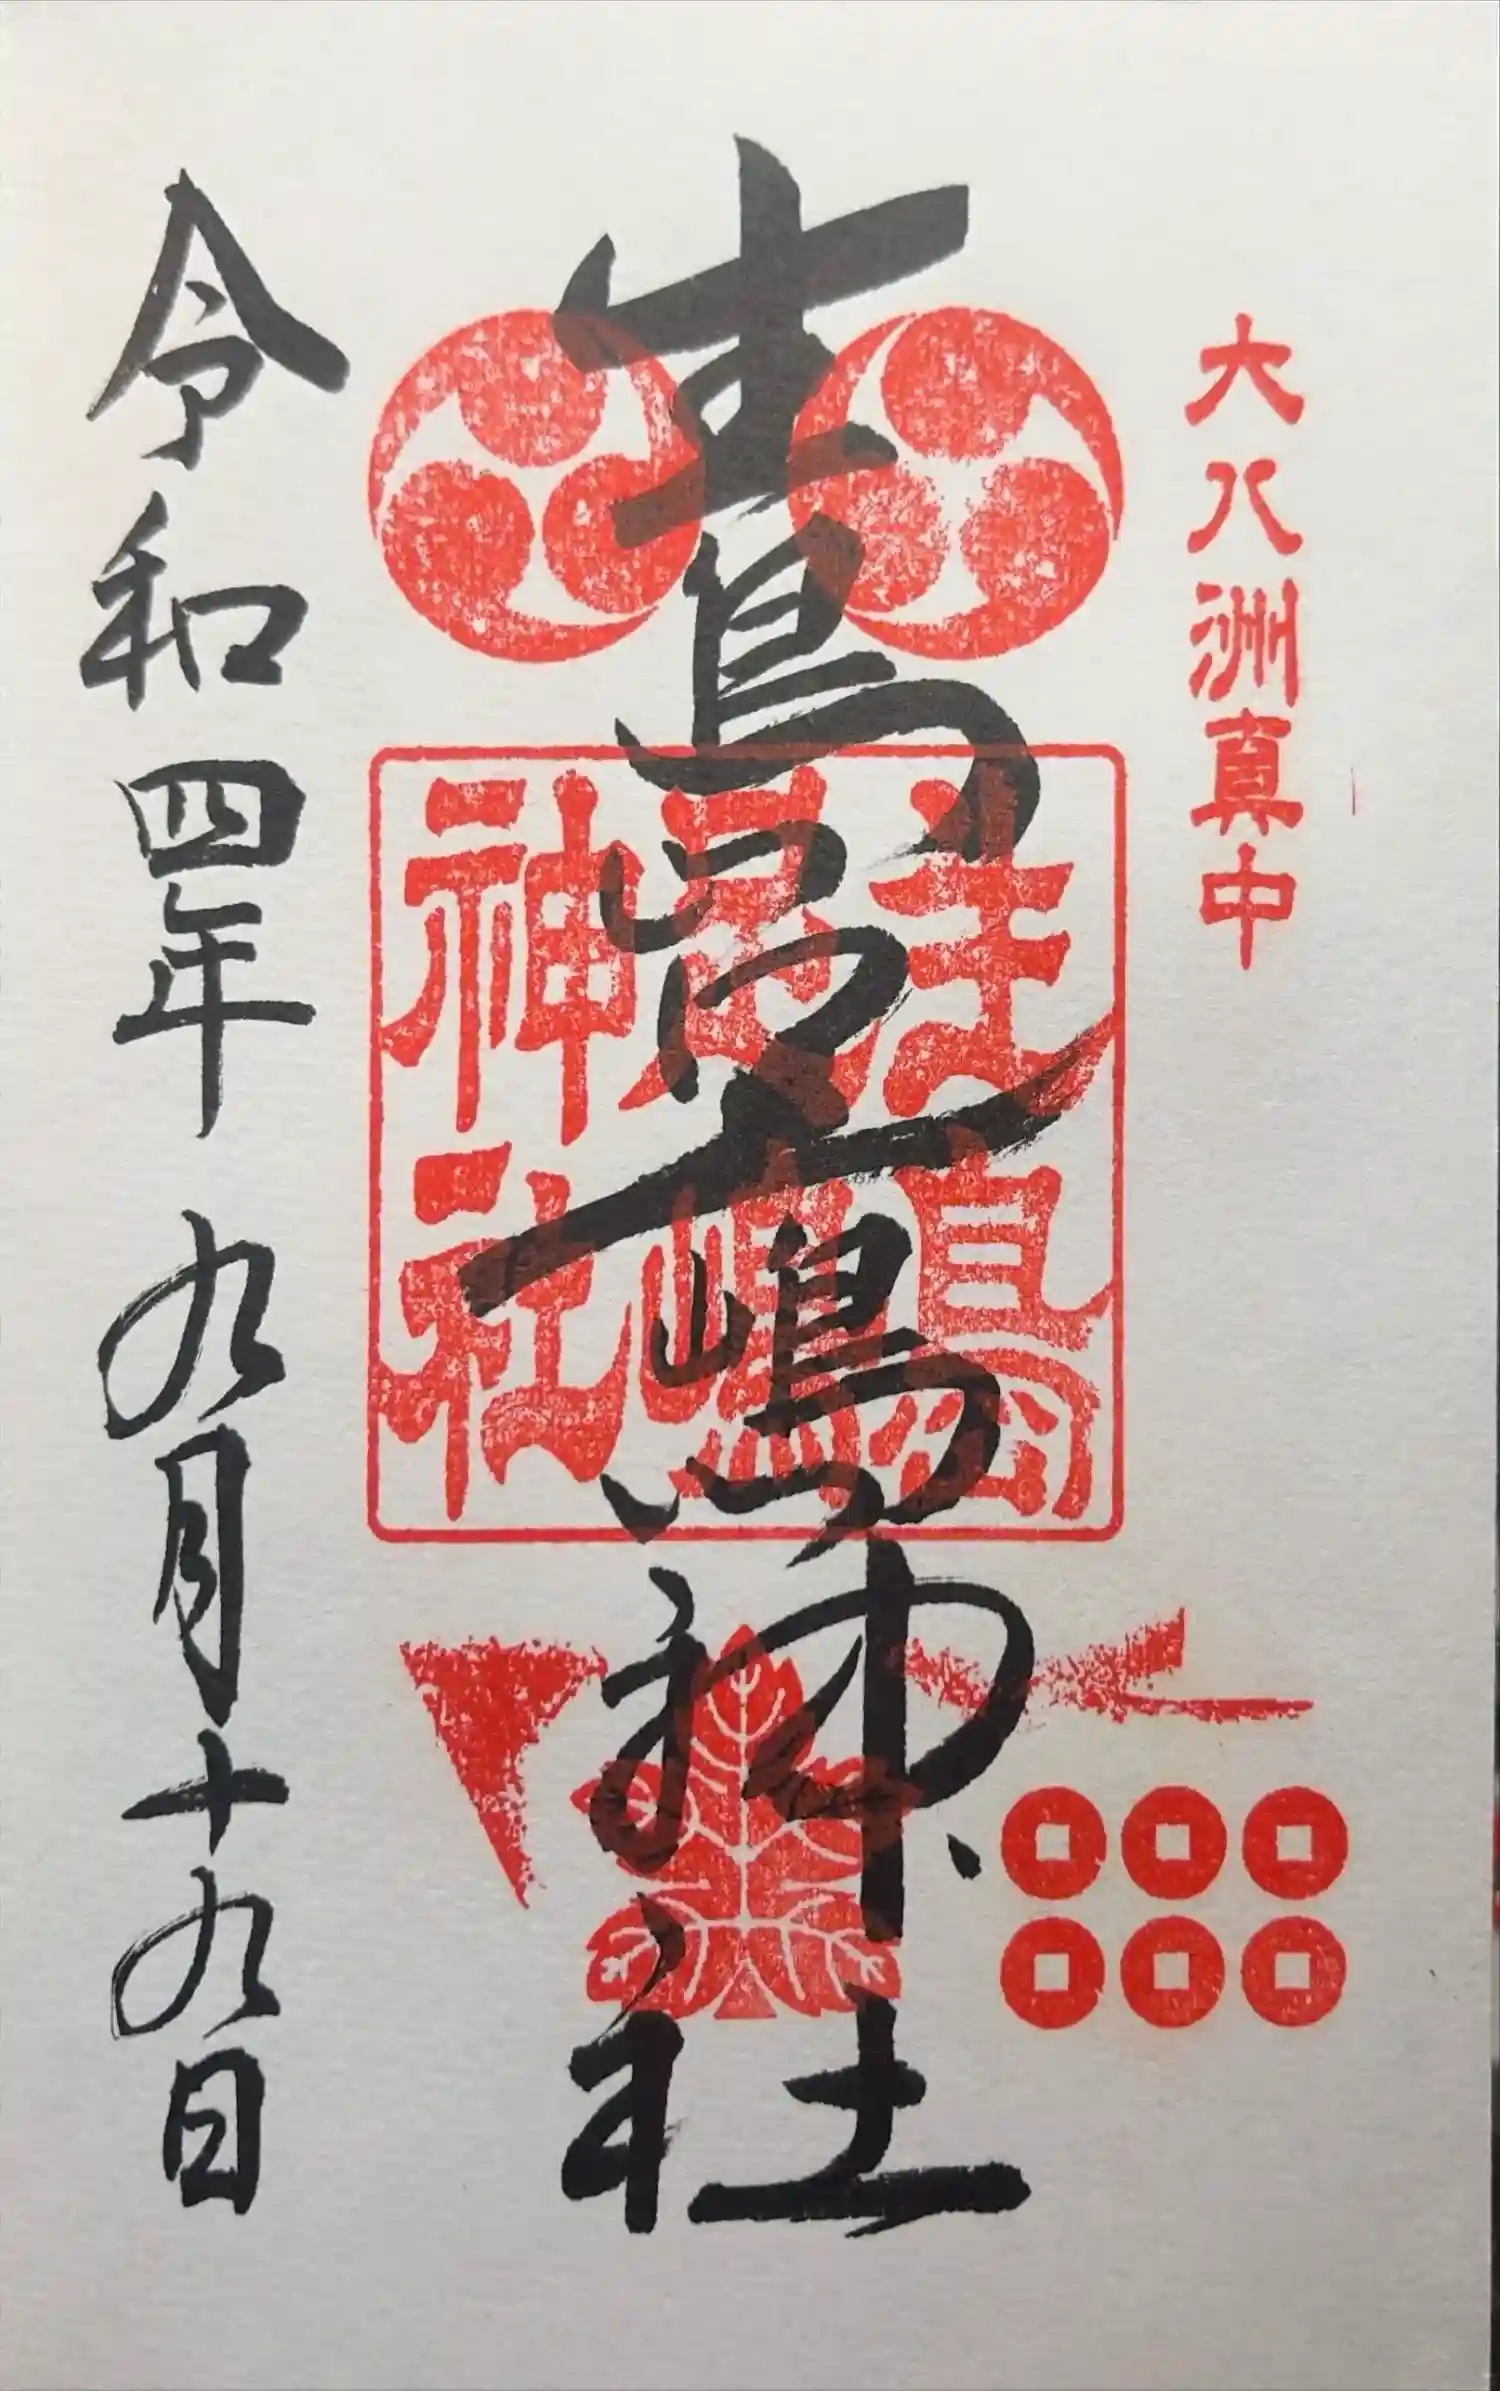 大八洲真中
生島足嶋神社
生島足嶋神社
令和四年九月十九日